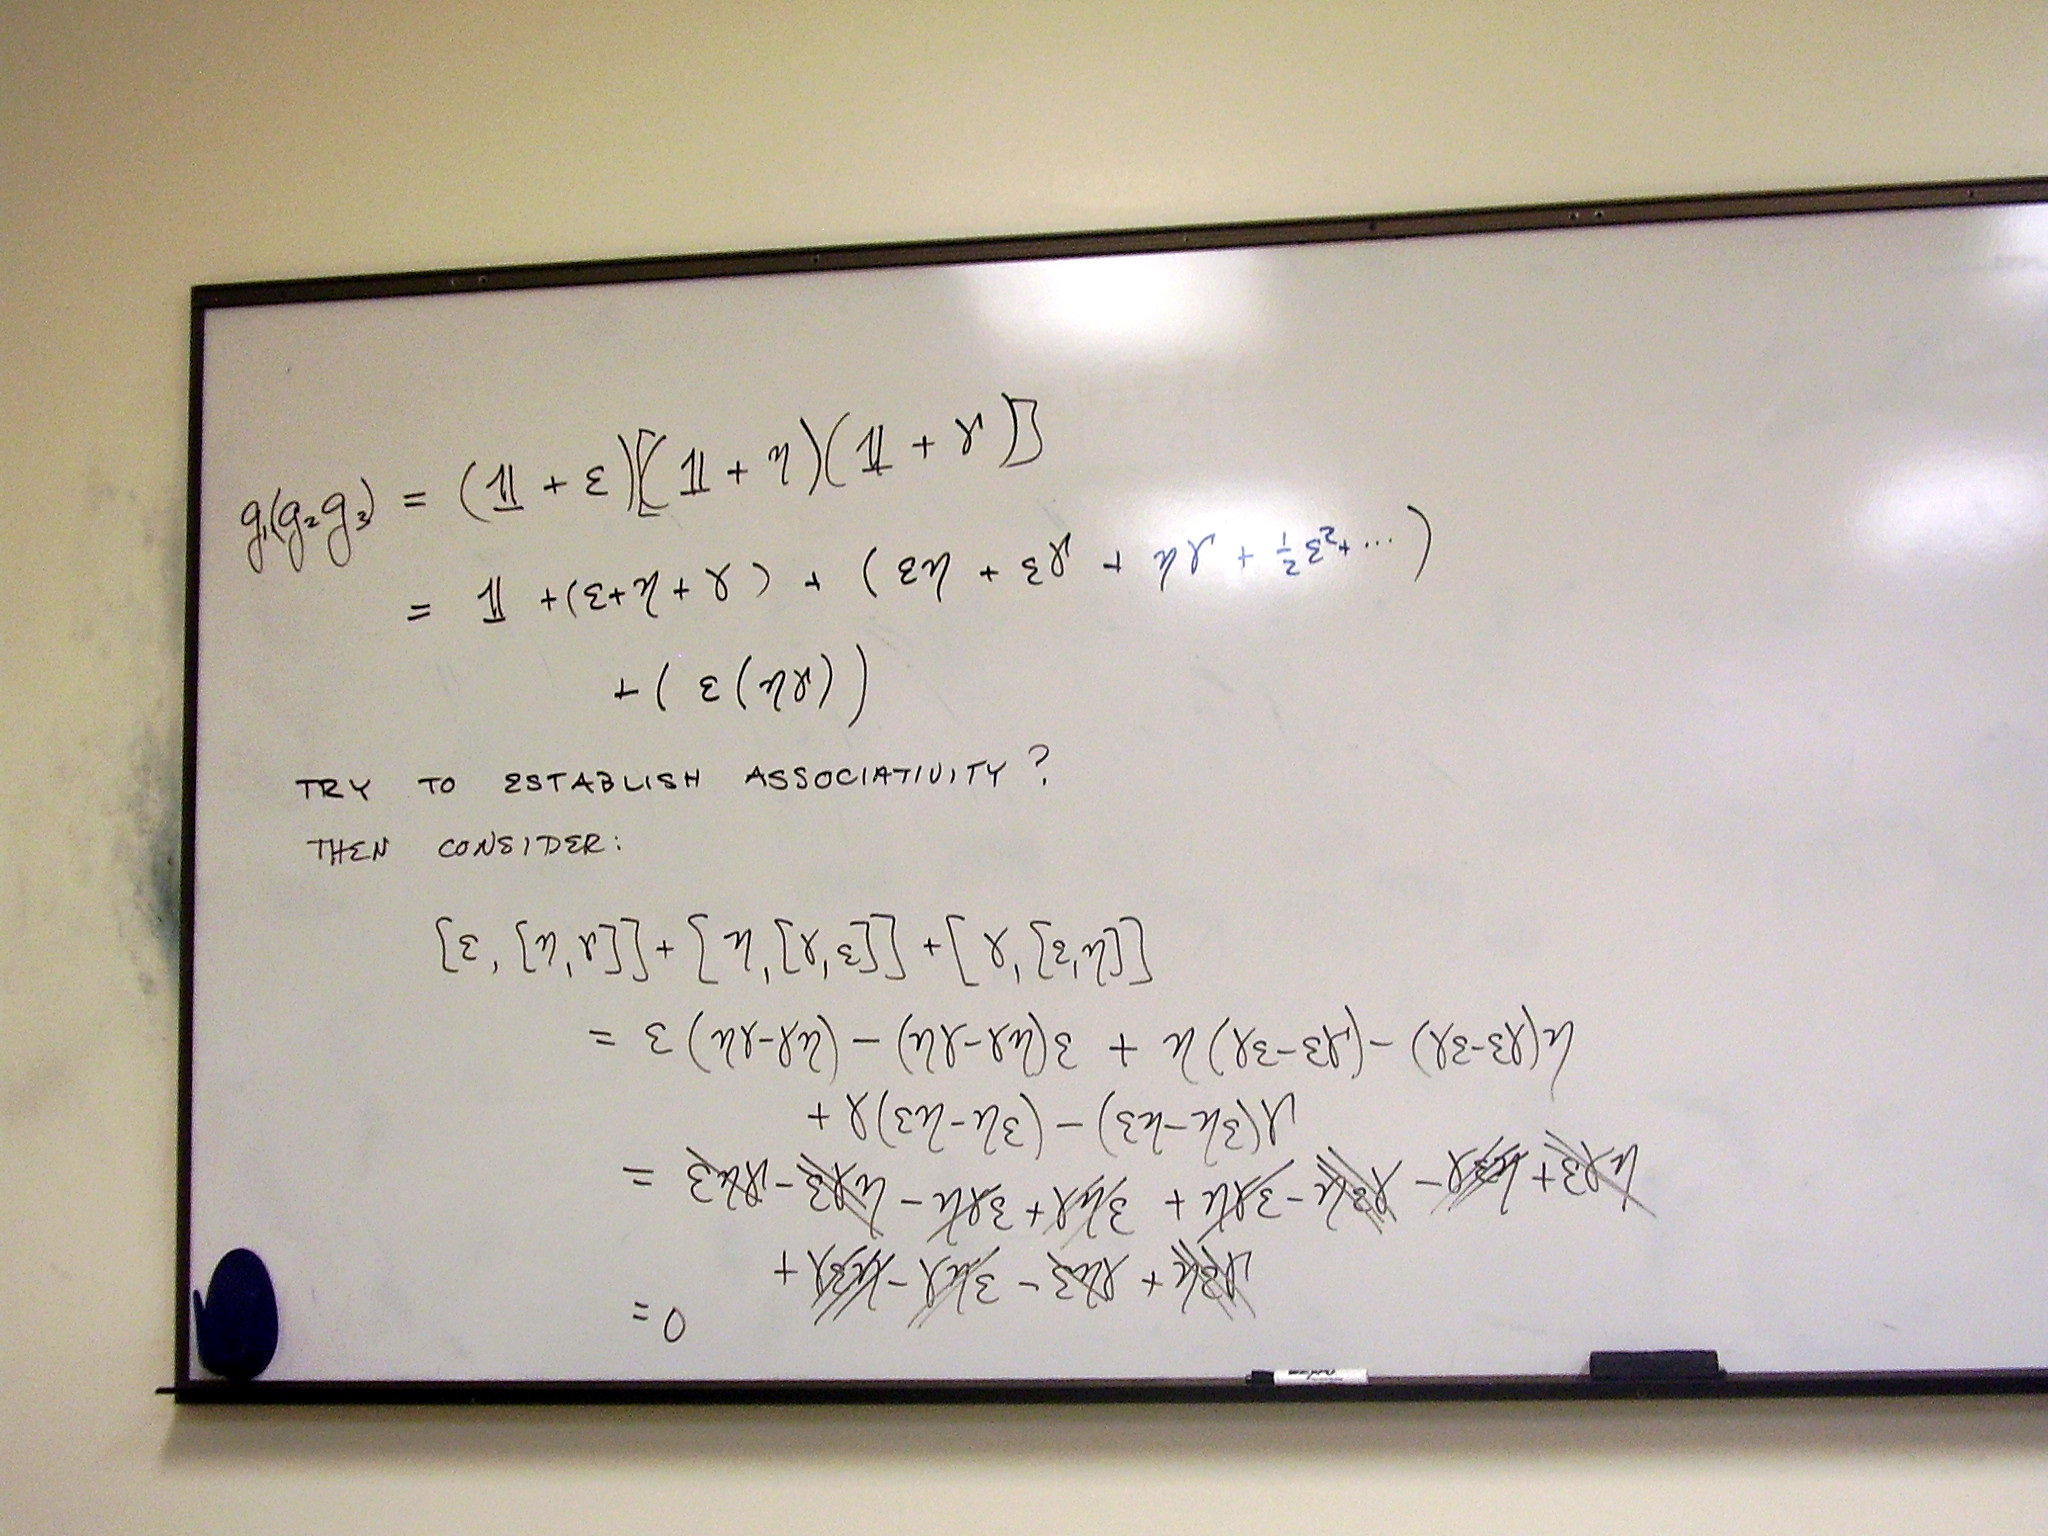 g₁(g₂g₃) = (𝟙 + ε)[(𝟙 + η)(𝟙 + γ)]
= 𝟙 + (ε+η+γ) + (εη + εγ + ηγ + ½ε²+ ...)
+ (ε(ηγ))
TRY TO ESTABLISH ASSOCIATIVITY?
THEN CONSIDER:
[ε, [η,γ]] + [η,[γ,ε]] + [γ,[ε,η]]
= ε(ηγ-γη) - (ηγ-γη)ε + η(γε-εγ) - (γε-εγ)η
+ γ(εη-ηε) - (εη-ηε)γ
= εηγ - εγη - ηγε + γηε + ηγε - ηεγ - γεη + εγη
+ γεη - γηε - εηγ + ηεγ
= 0